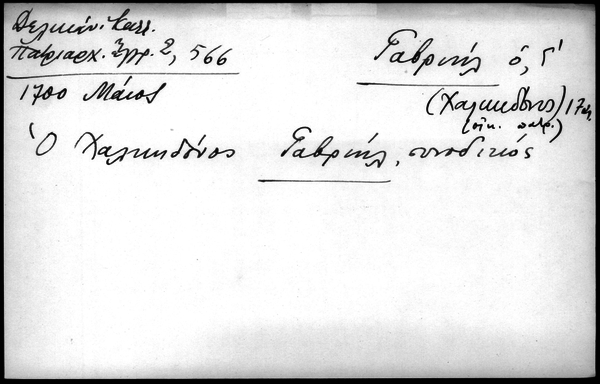 Δελικάν. Καλλ.
Πατριαρχ. Ἔγγρ. 2, 566
1700 Μάιος
Γαβριήλ ὁ, Γ΄
(Χαλκηδόνος) 17
(οἰκ. πατρ.)
Ὁ Χαλκηδόνος Γαβριήλ, συνοδικός